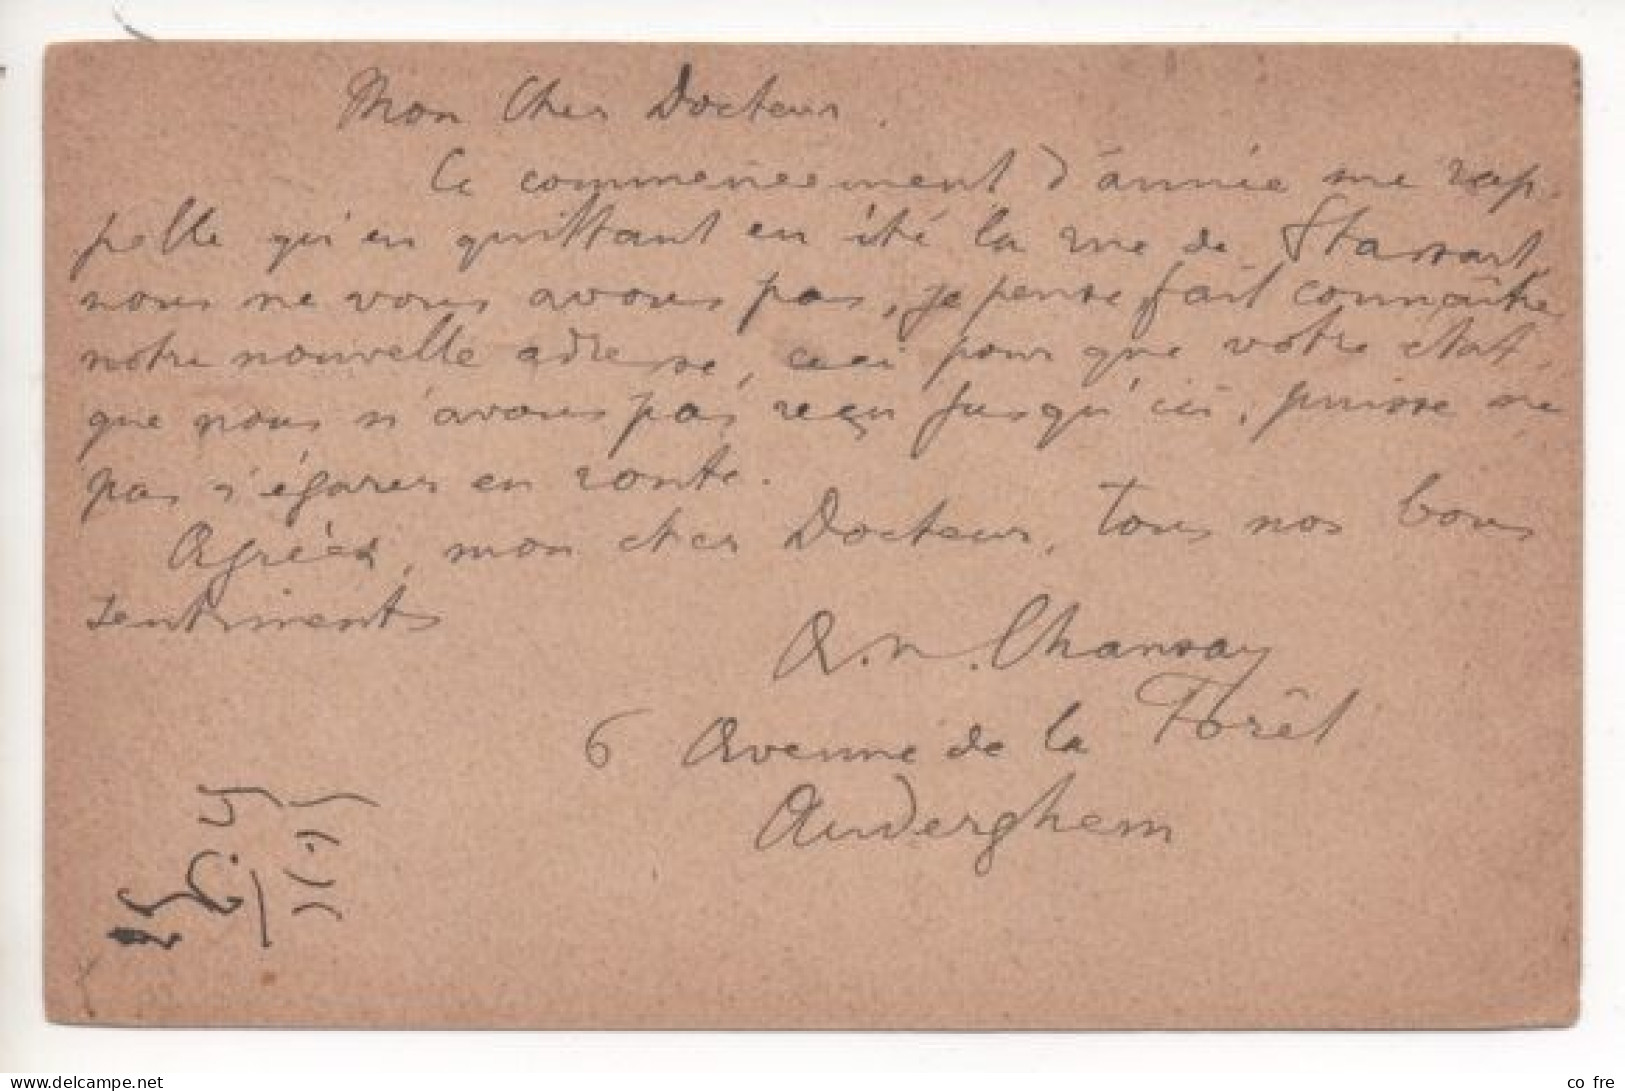 Mon Cher Docteur.
Ce commencement d'année me rap-
pelle qu'en quittant en été la rue de Stassart,
nous ne vous avons pas, je pense, fait connaître
notre nouvelle adresse, ceci pour que votre état,
que nous n'avons pas reçu jusqu'ici, puisse ne
pas s'égarer en route.
Agréez, mon cher Docteur, tous nos bons
sentiments
6 Avenue de la Forêt
Auderghem
www.delcampe.net
co fre